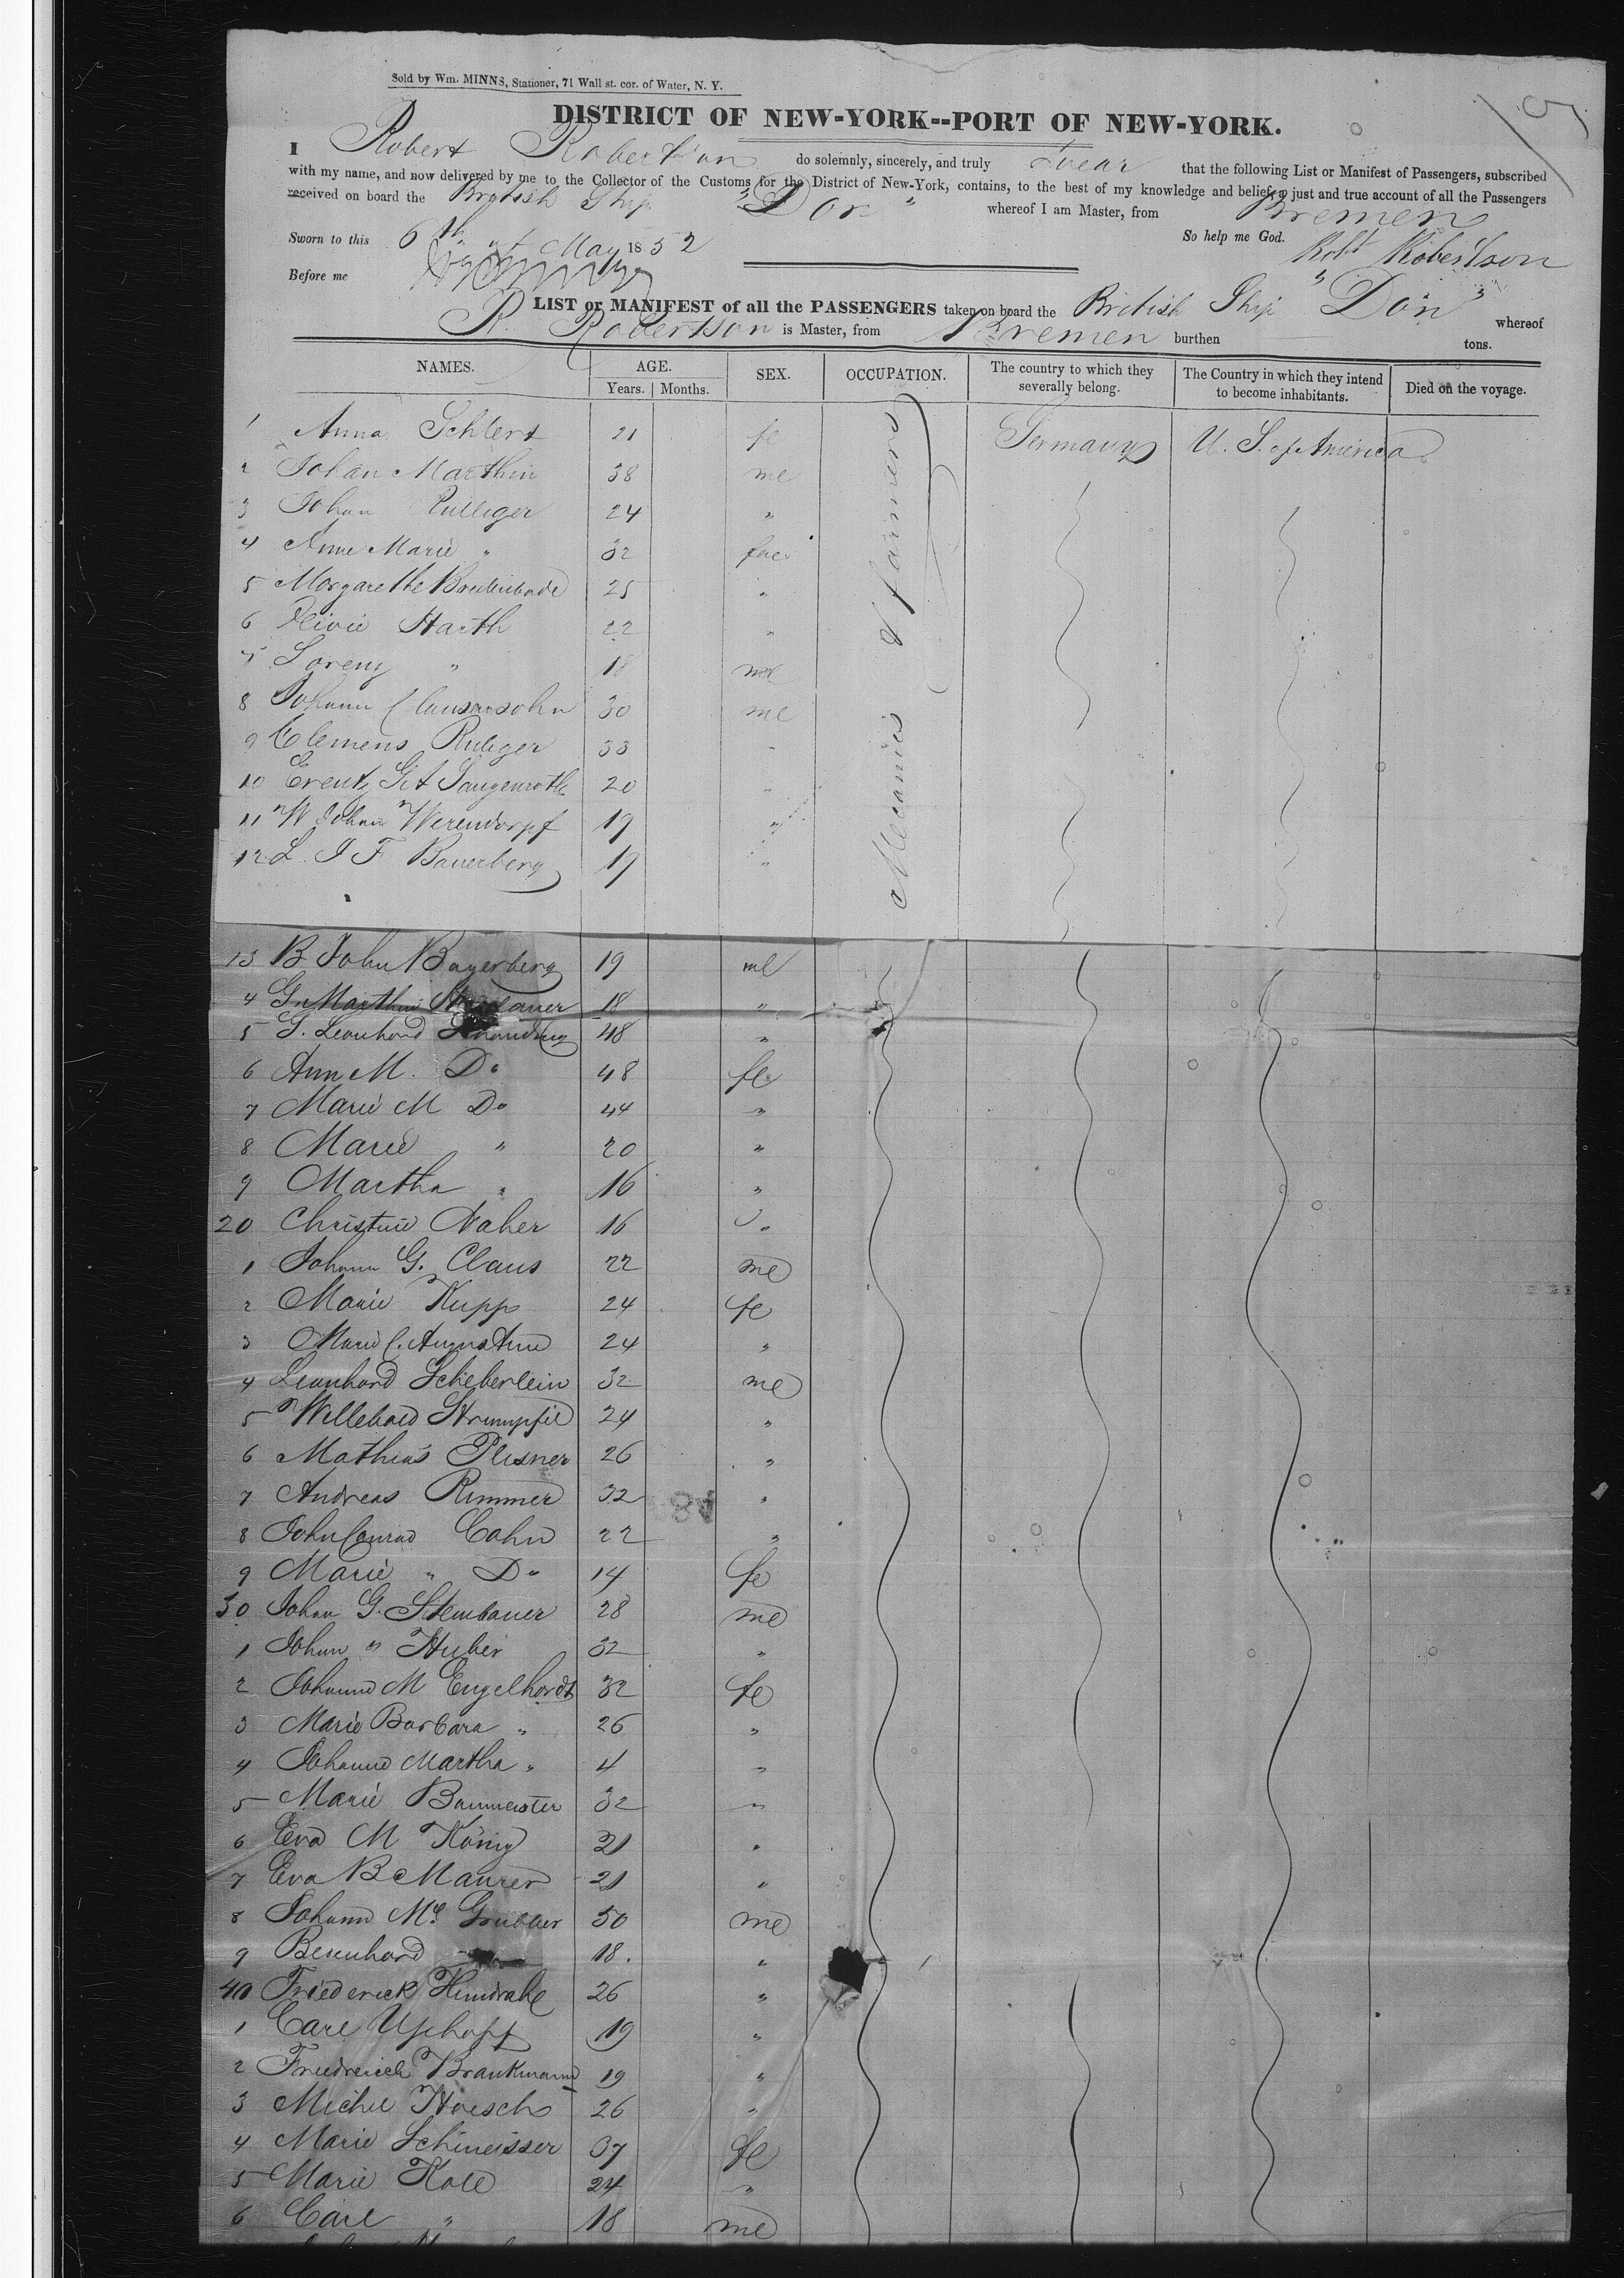 Sold by Wm. MINNS, Stationer, 71 Wall st. cor. of Water, N. Y.
DISTRICT OF NEW-YORK--PORT OF NEW-YORK.
I Robert Robertson do solemnly, sincerely, and truly Swear that the following List or Manifest of Passengers, subscribed
with my name, and now delivered by me to the Collector of the Customs for the District of New-York, contains, to the best of my knowledge and belief, a just and true account of all the Passengers
received on board the British Ship "Don" whereof I am Master, from Bremen
Sworn to this 6th of May 1852 So help me God.
Before me Robt Robertson
LIST or MANIFEST of all the PASSENGERS taken on board the British Ship "Don" whereof
R. Robertson is Master, from Bremen burthen tons.
NAMES. AGE. Years. Months. SEX. OCCUPATION. The country to which they severally belong. The Country in which they intend to become inhabitants. Died on the voyage.
Mecanics & farmers
1 Anna 21 fe Germany U. S. of America
2 Johan Marthin 38 me
3 Johan 24 "
4 Anne Marie " 32 fae
5 Margarethe 25 "
6 Harth 22 "
7 Lorenz " 18 me
8 Johann 30 me
9 Clemens Ruliger 33 "
10 20 "
11 W Johan Werendorpf 19 "
12 L. J F Bauerberg 19 "
13 B John Bayerberg 19 me
4 G. Marthin 18 "
5 G. Leonhard 48 "
6 Ann M. Do 48 fe
7 Marie M Do 44 "
8 Marie " 20 "
9 Martha " 16 "
20 Christine Naher 16
1 Johann G. Claus 22 me
2 Marie Kupp 24 fe
3 Marie C. Augustine 24 "
4 Leonhard Scheberlein 32 me
5 24 "
6 Mathias Plesner 26 "
7 Andreas Rimmer 32 "
8 John Conrad Cahn 22 "
9 Marie " Do 14 fe
30 Johan G. Steinbauer 28 me
1 Johan " Huber 32 "
2 Johanne M Engelhardt 32 fe
3 Marie Barbara " 26 "
4 Johanne Martha " 4 "
5 Marie Baumeister 32 "
6 Eva M König 21 "
7 Eva B Maurer 21 "
8 Johann 50 me
9 Bernhard 18. "
40 Friederick 26 "
1 Carl Uphoff 19 "
2 Friedreich Brankmann 19 "
3 Michel Hoesch 26 "
4 Marie Schmeisser 37 fe
5 Marie Kole 24 "
6 Carl " 18 me